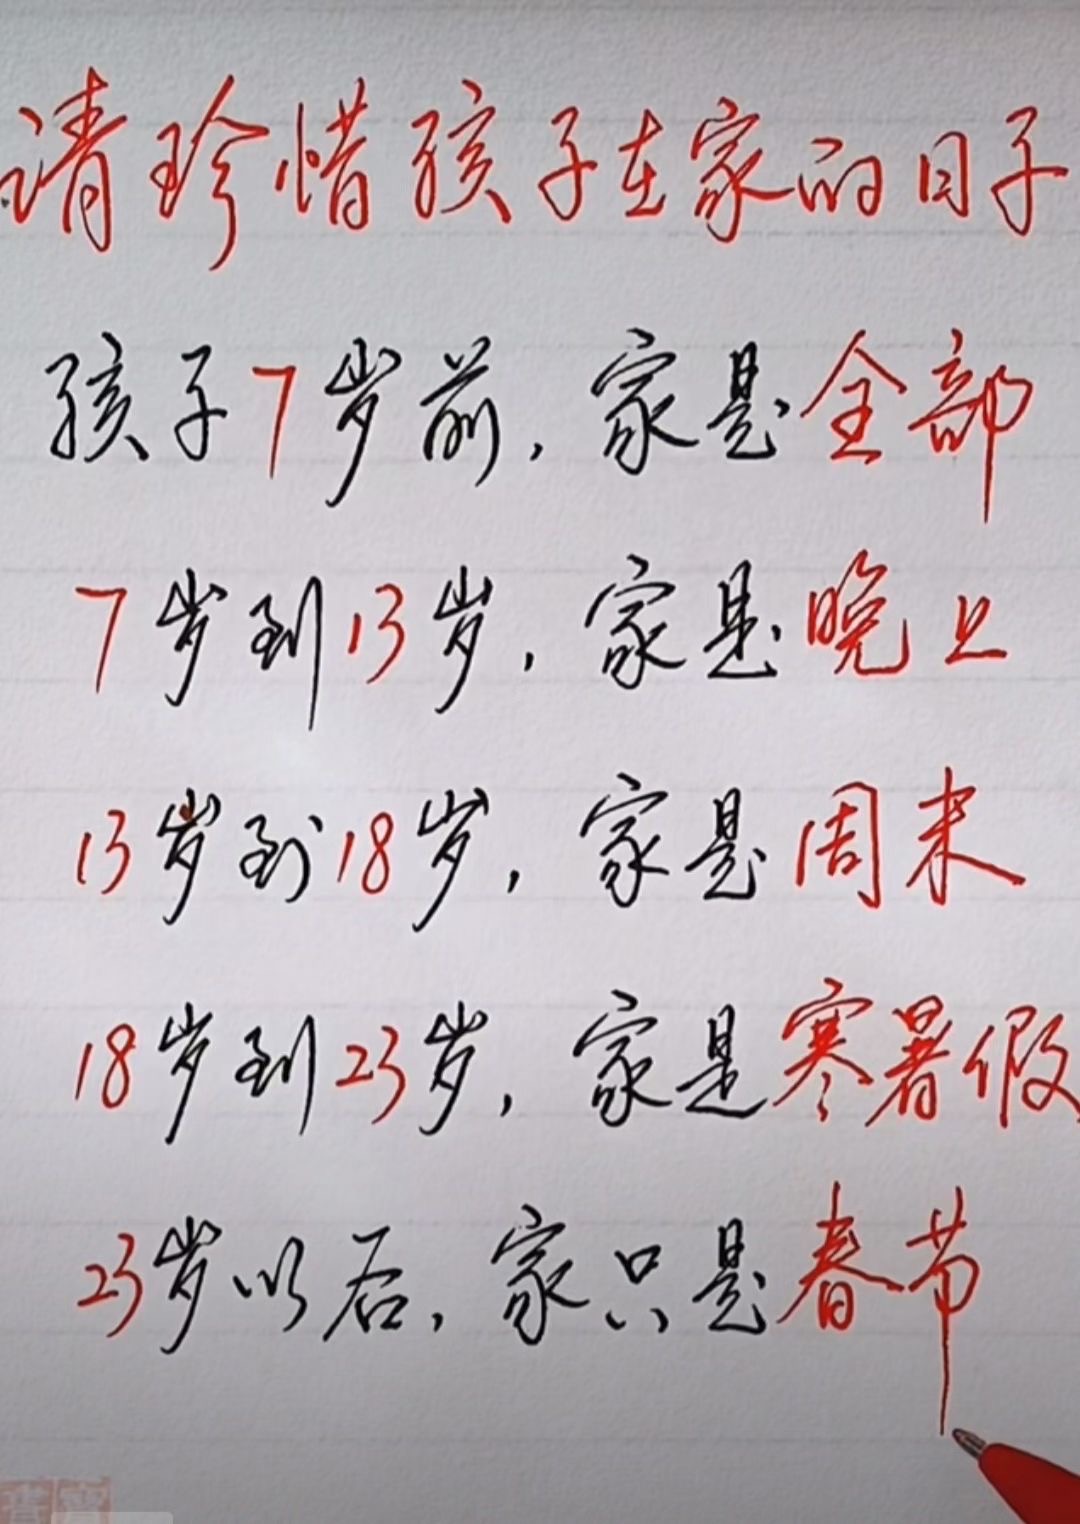 请珍惜孩子在家的日子
孩子7岁前,家是全部
7岁到13岁,家是晚上
13岁到18岁,家是周末
18岁到23岁,家是寒暑假
23岁以后,家只是春节